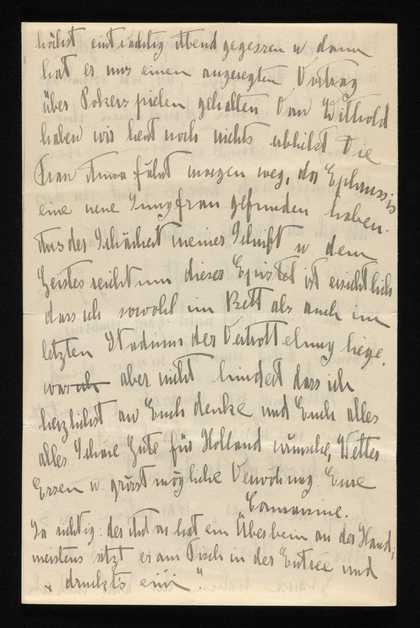 höchst einträchtig Abend gegessen u dann
hat er uns einen angeregten Vortrag
über Pokerspielen gehalten. Von Withold
haben wir heut noch nichts Die
Frau Anna fährt morgen weg, da Ephrussis
eine neue Jungfrau gefunden haben.
Aus der Schönheit meiner Schrift u dem
Geistesreichtum dieser Epistel ist ersichtlich
dass ich sowohl im Bett als auch im
letzten Stadium der Vertrottelung liege,
was aber nicht hindert dass ich
herzlichst an Euch denke und Euch alles
alles Schöne Gute für Holland wünsche, Wetter
Essen u grösstmögliche Eure

Ja richtig, der hat ein Überbein an der Hand,
meistens sitzt er am Tisch in der Entrée und
"druckts eini".